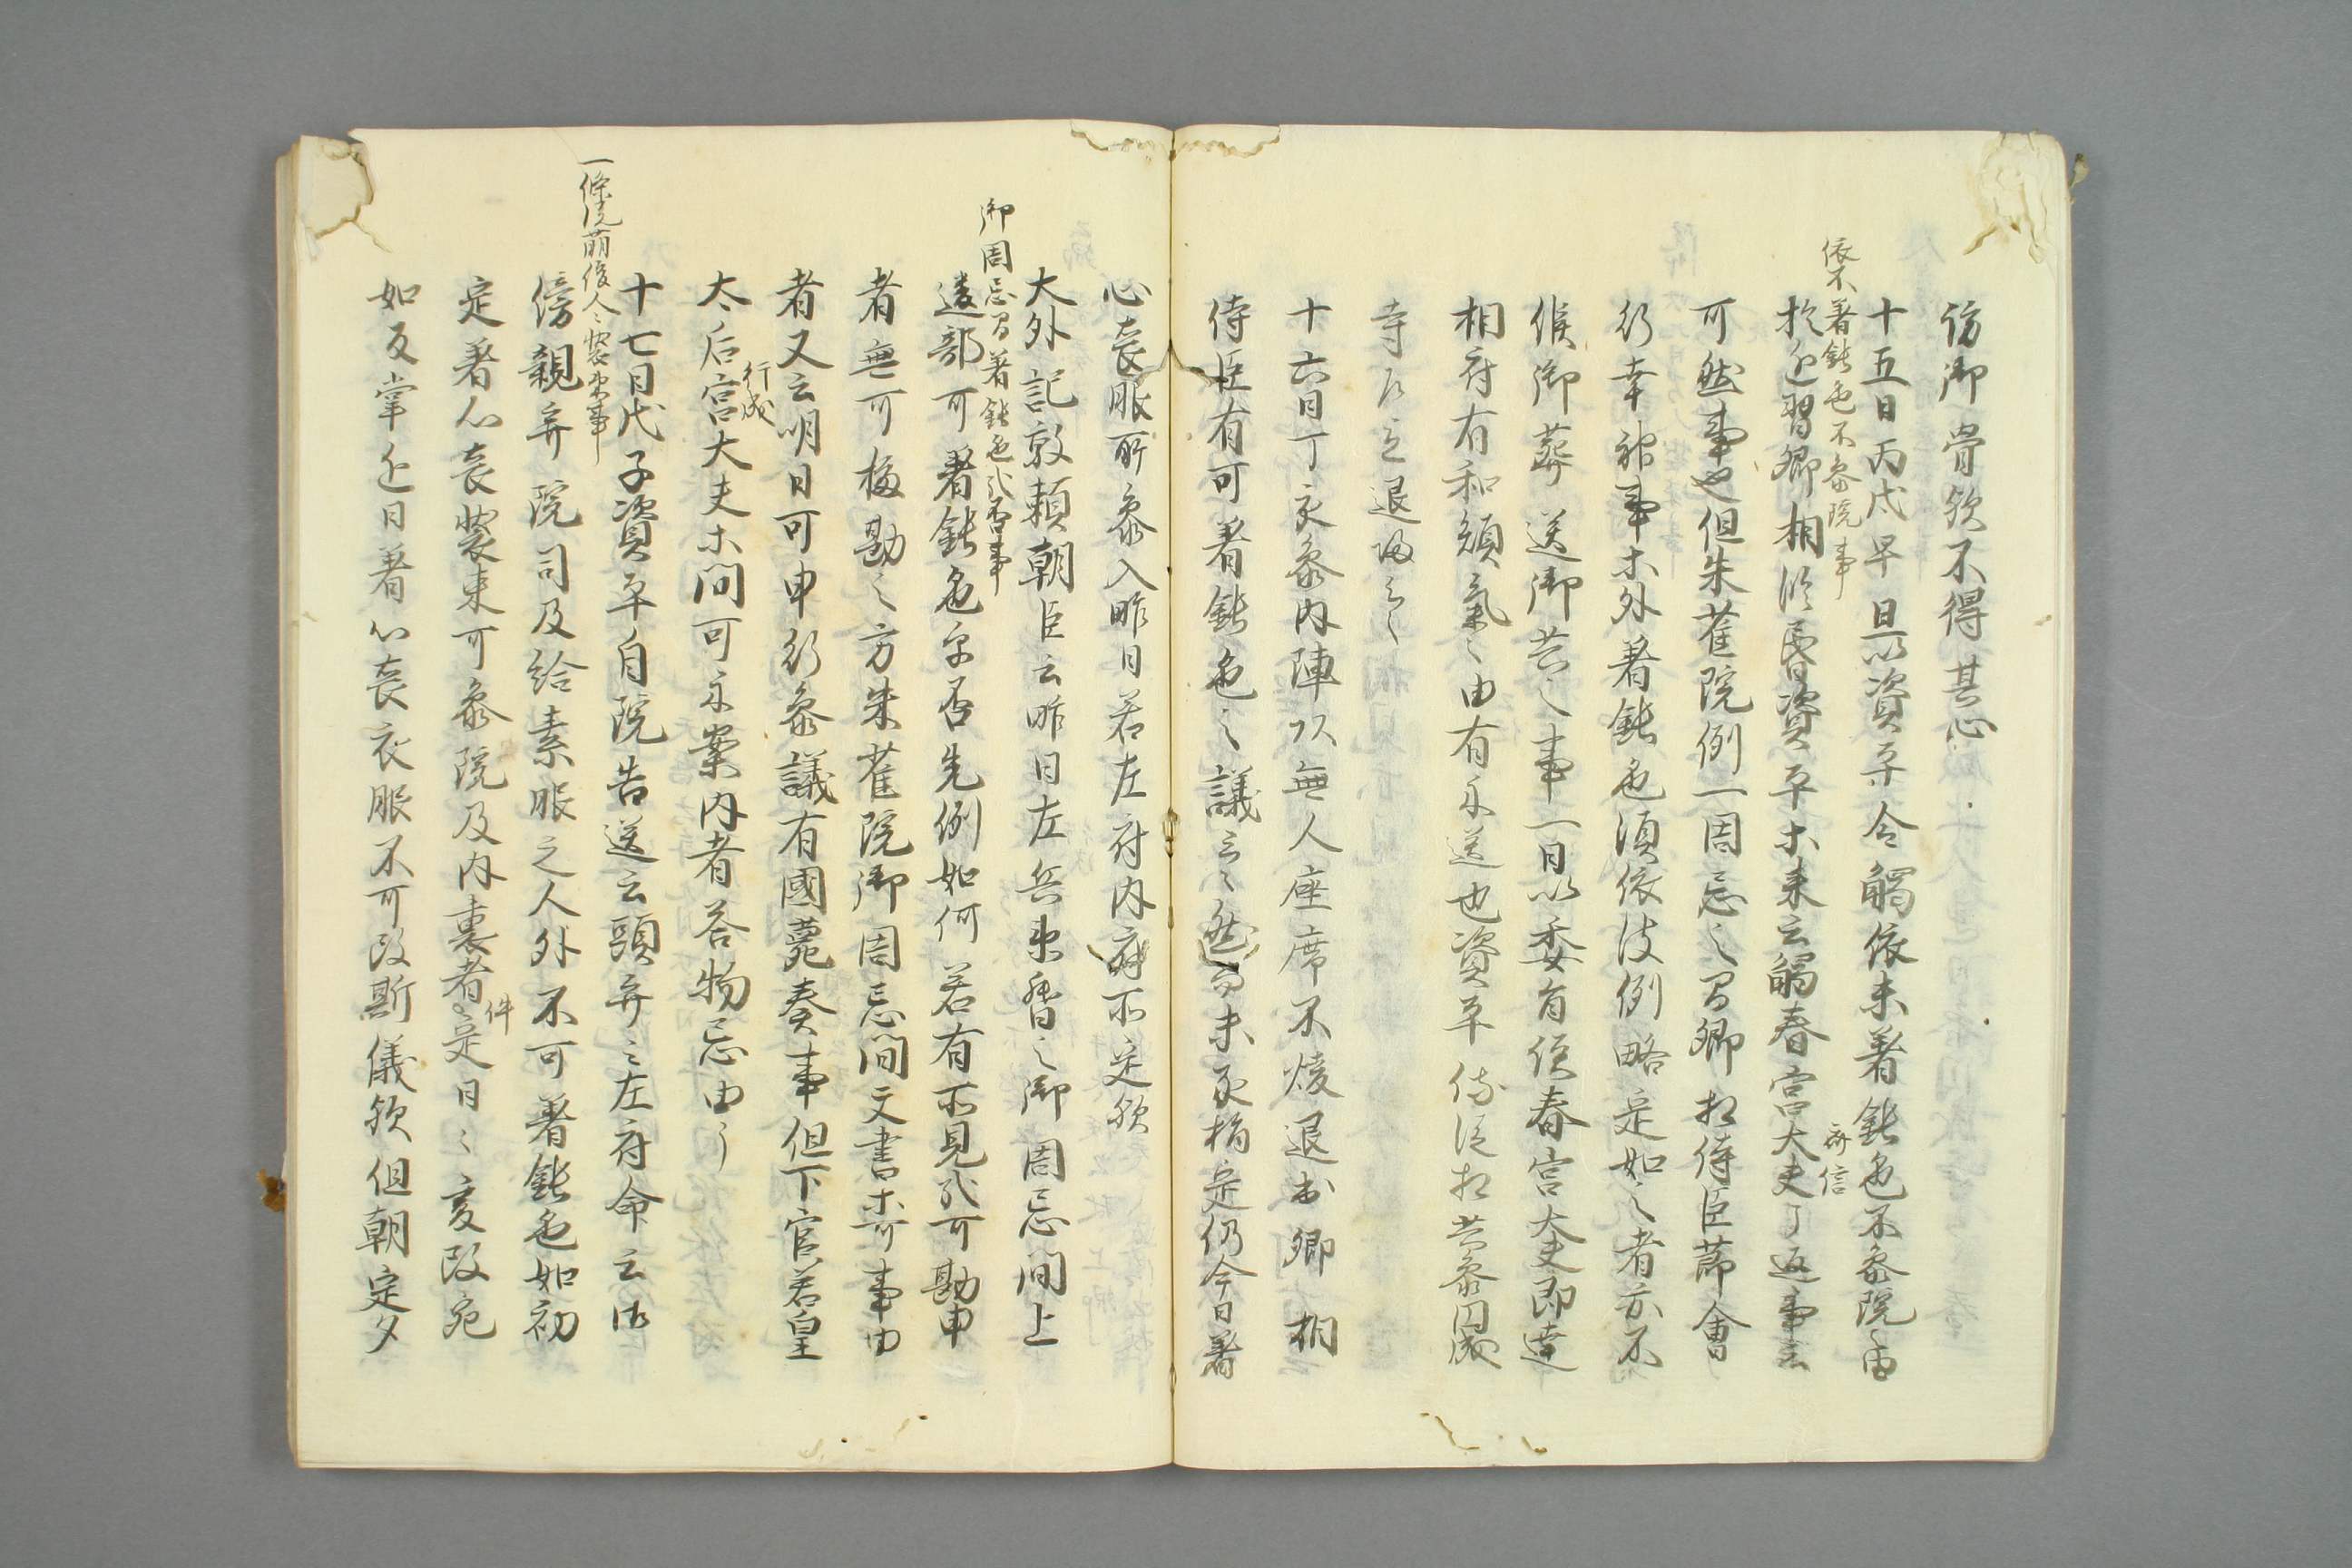 訪御骨欤不得其心
依不著鈍色不参院事
十五日丙戌早旦以資平令觸依未著鈍色不参院由
於近習卿相臨昏資平等来云觸春宮大夫了返事云
斉信
可然事也但朱雀院例一周忌之間卿相侍臣節會
行幸神事等外著鈍色須依彼例略定如之者亦不
候御葬送御共之事一日以委有伝春宮大夫即達
相府有和顔氣之由有示送也資平依從相共参圓成
寺即退歸云々
十六日丁亥参内陣頭無人座席不煖退出卿相
侍臣有可著鈍色之議云々然而未承指定仍今日著
心喪服所参入昨日若左府内府所定欤
大外記敦頼朝臣云昨日左兵来督之御周忌間上
御周忌間著鈍色哉否事
達部可著鈍色乎否先例如何若有所見哉可勘申
者無可極勘之方朱雀院御周忌間文書等可事由
者又云明日可申行参議有國薨奏事但下官若皇
太后宮大夫等間可示案内者答物忌由了
行成
十七日戊子資平自院告送云頭弁云左府命云御
一條院崩後人々装束事
傍親并院司及給素服之人外不可著鈍色如初
定著心喪装束可参院及内裏者件定日々変改宛
如反掌近日著心喪衣服不可改斯儀欤但朝定夕